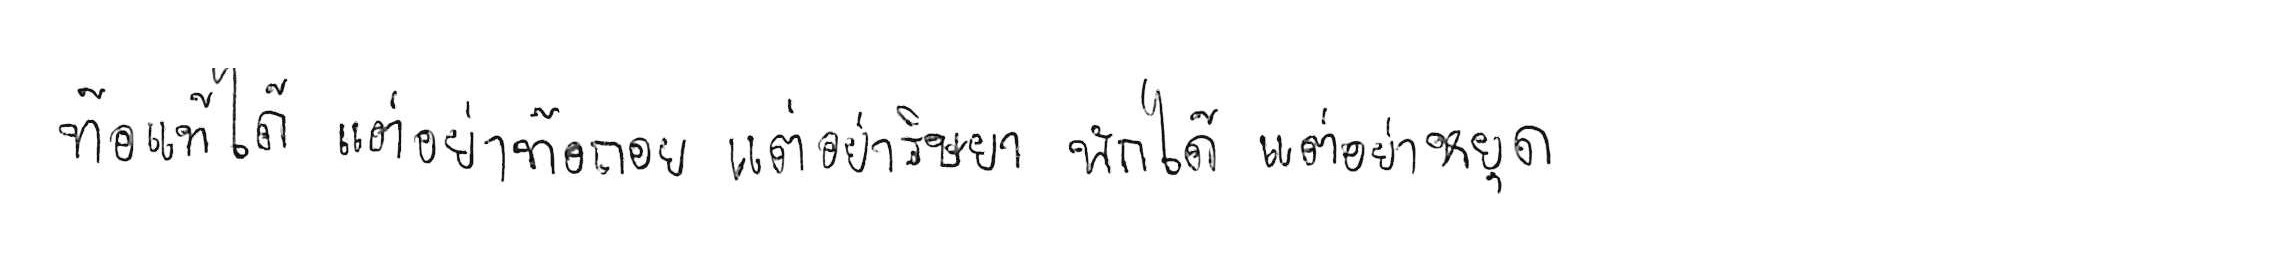 ท้อแท้ได้ แต่อย่าท้อถอย แต่อย่าริษยา พักได้ แต่อย่าหยุด